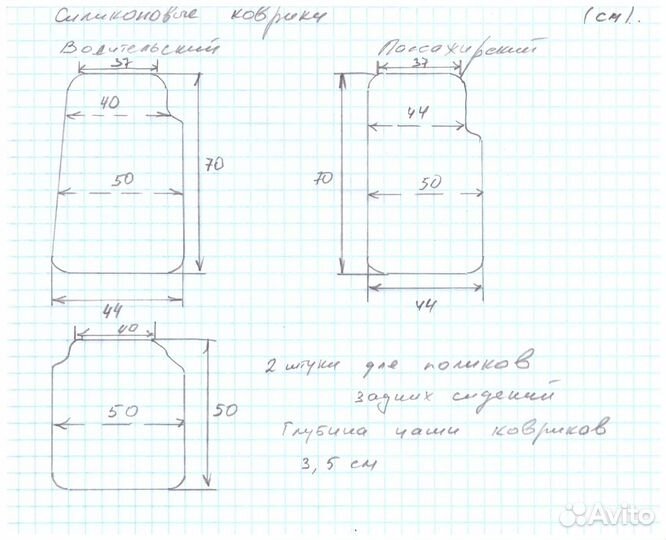 Силиконовые коврики (см).
Водительский
Пассажирский
37
40
50
70
44
37
44
50
70
44
40
50
50
2 штуки для поликов
задних сидений
Глубина чаши ковриков
3,5 см
Avito